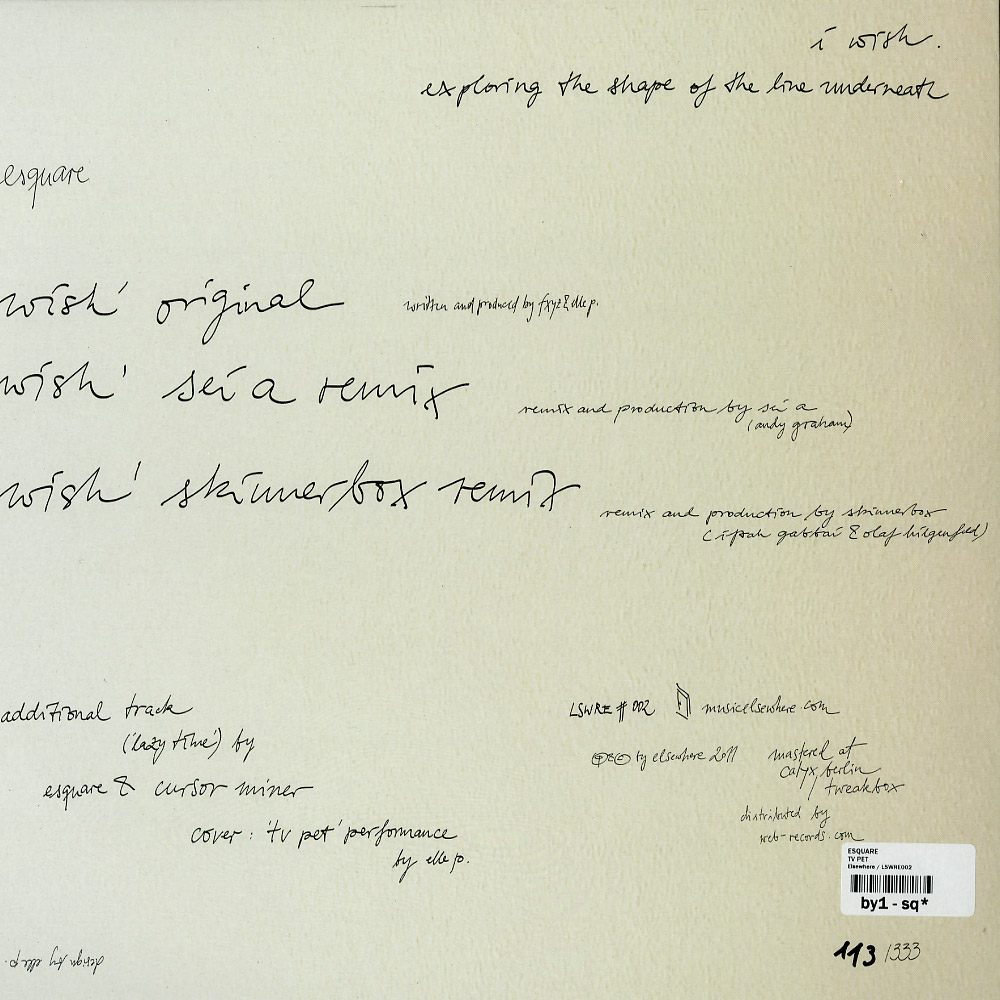 i wish.
exploring the shape of the line underneath
esquare
wish' original
written and produced by fxyz & elle p.
wish' sei a remix
remix and production by sei a
(andy graham)
wish' skinnerbox remix
remix and production by skinnerbox
(iftah gabbai & olaf hilgenfeld)
additional track
('lazy time') by
esquare & cursor miner
cover: 'tv pet' performance
by elle p.
LSWRE # 002 musicelsewhere.com
℗ & © by elsewhere 2011
mastered at
calyx, berlin
/ tweakbox
distributed by
web-records.com
ESQUARE
TV PET
Elsewhere / LSWRE002
by1 - sq*
113 /333
design by elle p.